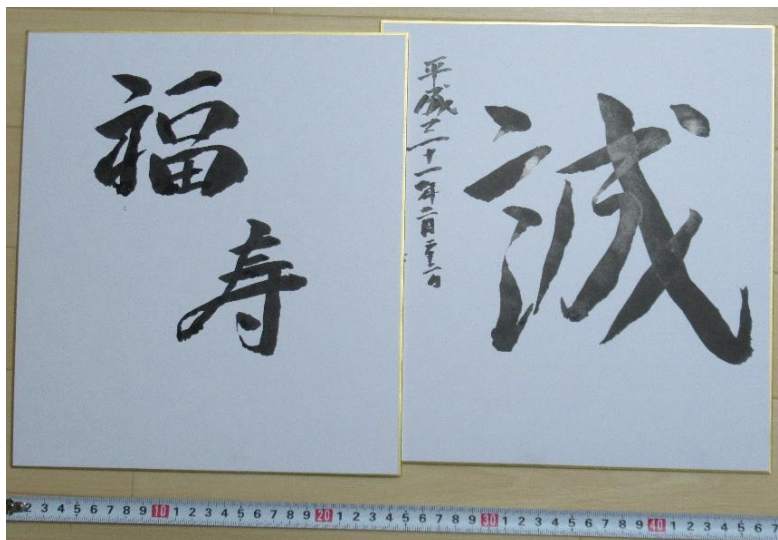 福
寿
誠
平成二十一年二月
2 3 4 5 6 7 8 9 10 1 2 3 4 5 6 7 8 9 20 1 2 3 4 5 6 7 8 9 30 1 2 3 4 5 6 7 8 9 40 1 2 3 4 5 6 7